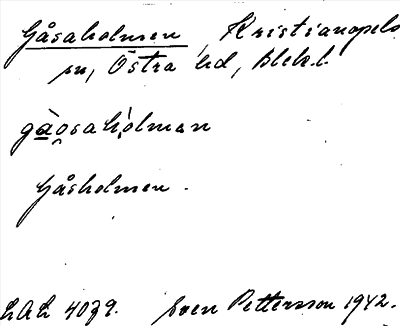 Gåsaholmen, Kristianopels
sn, Östra hd, Blek. l.
gåo̯saholman
Gåsholmen.
LAL 4079. Sven Pettersson 1942.